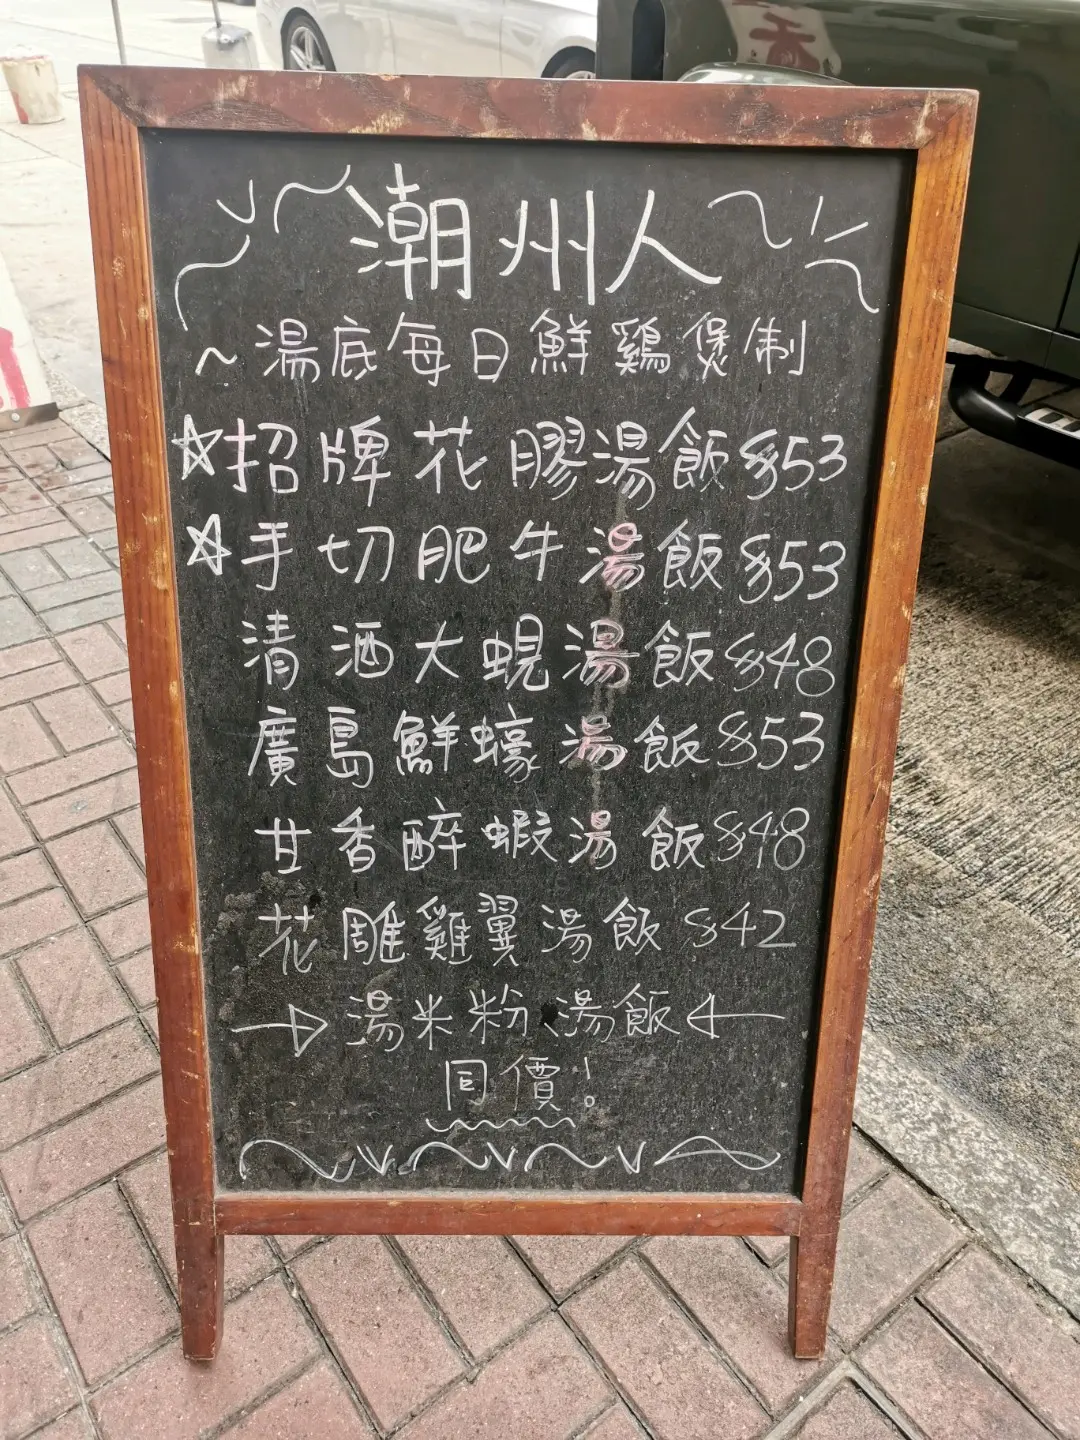 潮州人
~湯底每日鮮鷄煲制
☆招牌花膠湯飯$53
☆手切肥牛湯飯$53
清酒大蜆湯飯$48
廣島鮮蠔湯飯$53
甘香醉蝦湯飯$48
花雕雞翼湯飯$42
→湯米粉、湯飯←
同價!